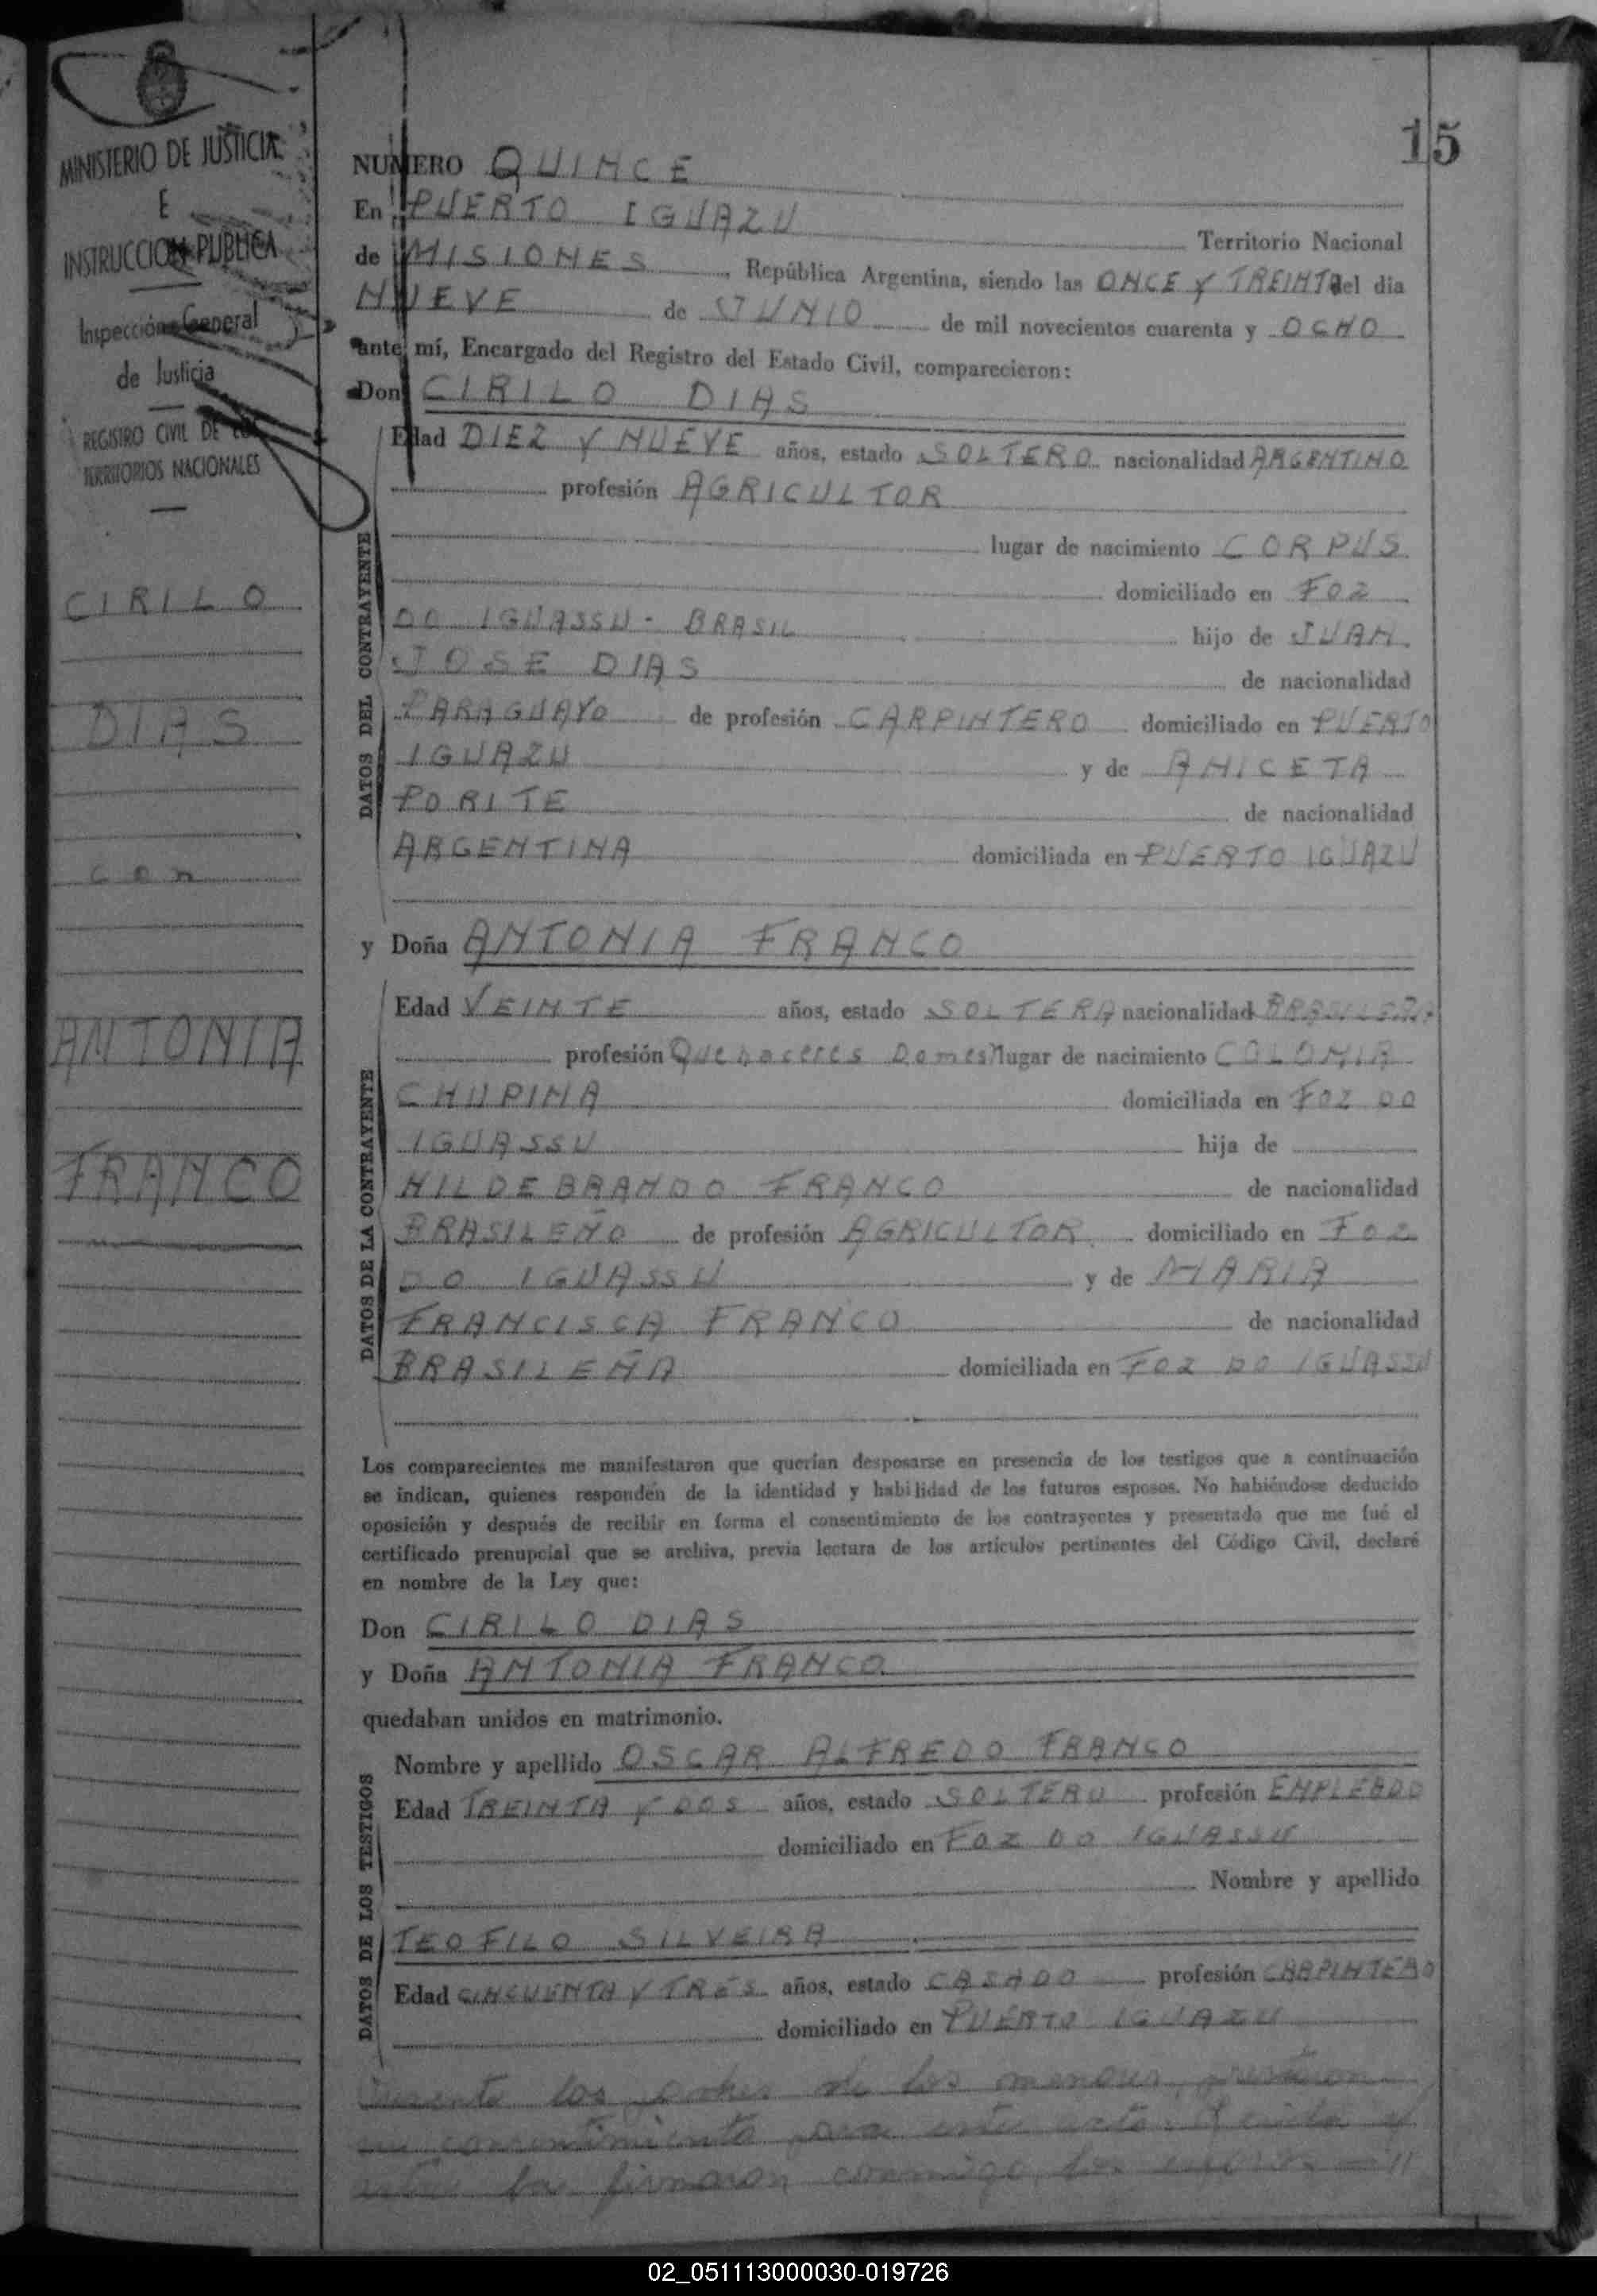 15
MINISTERIO DE JUSTICIA
E
INSTRUCCION PUBLICA
Inspección General
de Justicia
REGISTRO CIVIL DE LOS
TERRITORIOS NACIONALES
CIRILO
DIAS
con
ANTONIA
FRANCO
NUMERO QUINCE
En PUERTO IGUAZU Territorio Nacional
de MISIONES, República Argentina, siendo las ONCE Y TREINTA del dia
NUEVE de JUNIO de mil novecientos cuarenta y OCHO
ante mí, Encargado del Registro del Estado Civil, comparecieron:
Don CIRILO DIAS
DATOS DEL CONTRAYENTE
Edad DIEZ Y NUEVE años, estado SOLTERO nacionalidad ARGENTINO
profesión AGRICULTOR
lugar de nacimiento CORPUS
domiciliado en FOZ
DO IGUASSU - BRASIL hijo de JUAN
JOSE DIAS de nacionalidad
PARAGUAYO de profesión CARPINTERO domiciliado en PUERTO
IGUAZU y de ANICETA
PORITE de nacionalidad
ARGENTINA domiciliada en PUERTO IGUAZU
y Doña ANTONIA FRANCO
DATOS DE LA CONTRAYENTE
Edad VEINTE años, estado SOLTERA nacionalidad BRASILEÑA
profesión Quehaceres Domest lugar de nacimiento COLONIA
CHUPINA domiciliada en FOZ DO
IGUASSU hija de
HILDEBRANDO FRANCO de nacionalidad
BRASILEÑO de profesión AGRICULTOR domiciliado en FOZ
DO IGUASSU y de MARIA
FRANCISCA FRANCO de nacionalidad
BRASILEÑA domiciliada en FOZ DO IGUASSU
Los comparecientes me manifestaron que querían desposarse en presencia de los testigos que a continuación
se indican, quienes responden de la identidad y habilidad de los futuros esposos. No habiéndose deducido
oposición y después de recibir en forma el consentimiento de los contrayentes y presentado que me fué el
certificado prenupcial que se archiva, previa lectura de los artículos pertinentes del Código Civil, declaré
en nombre de la Ley que:
Don CIRILO DIAS
y Doña ANTONIA FRANCO
quedaban unidos en matrimonio.
DATOS DE LOS TESTIGOS
Nombre y apellido OSCAR ALFREDO FRANCO
Edad TREINTA Y DOS años, estado SOLTERO profesión EMPLEADO
domiciliado en FOZ DO IGUASSU
Nombre y apellido
TEOFILO SILVEIRA
Edad CINCUENTA Y TRES años, estado CASADO profesión CARPINTERO
domiciliado en PUERTO IGUAZU
los padres de los menores, prestaron
su consentimiento para este acto
la firmaron conmigo, los
02_051113000030-019726